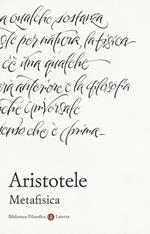 a qualche sostanza
s'è per natura, la fisica
c'è una qualche
rà anteriore e la filosofia
che universale
senso che è prima—
Aristotele
Metafisica
Biblioteca Filosofica Laterza